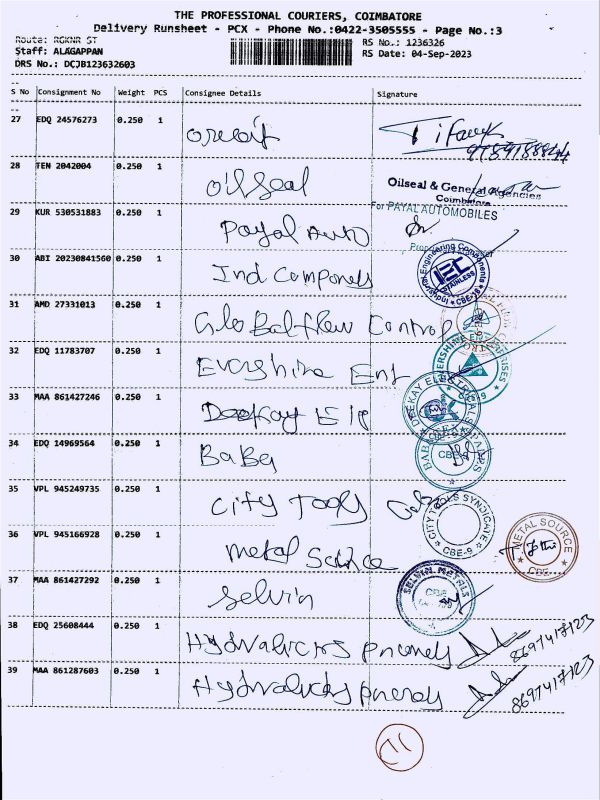 THE PROFESSIONAL COURIERS, COIMBATORE
Delivery Runsheet - PCX - Phone No.:0422-3505555 - Page No.:3
Route: RGKNR ST
RS No.: 1236326
Staff: ALAGAPPAN
RS Date: 04-Sep-2023
DRS No.: DCJB123632603
S No Consignment No Weight PCS Consignee Details Signature
27 EDQ 24576273 0.250 1
28 TEN 2042004 0.250 1 oilseal
Oilseal & General Agencies
Coimbatore
29 KUR 530531883 0.250 1 Payal Auto
For PAYAL AUTOMOBILES
30 ABI 20230841560 0.250 1 Ind Componets
Engineering Components
IEC
STAINLESS
CBE-18
31 AMD 27331013 0.250 1 Globalflow Control
32 EDQ 11783707 0.250 1 Evershine Ent
EVERSHINE ENTERPRISES
33 MAA 861427246 0.250 1 Deekay Ele
DEEKAY ELECTRICALS
34 EDQ 14969564 0.250 1 Baba
BABA SPARES
CBE-9
35 VPL 945249735 0.250 1 City Tools
CITY TOOLS SYNDICATE
CBE-9
36 VPL 945166928 0.250 1 Metal Source
METAL SOURCE
CBE-
37 MAA 861427292 0.250 1 Selvin
SELVIN METALS
38 EDQ 25608444 0.250 1
8697417123
39 MAA 861287603 0.250 1
8697417123